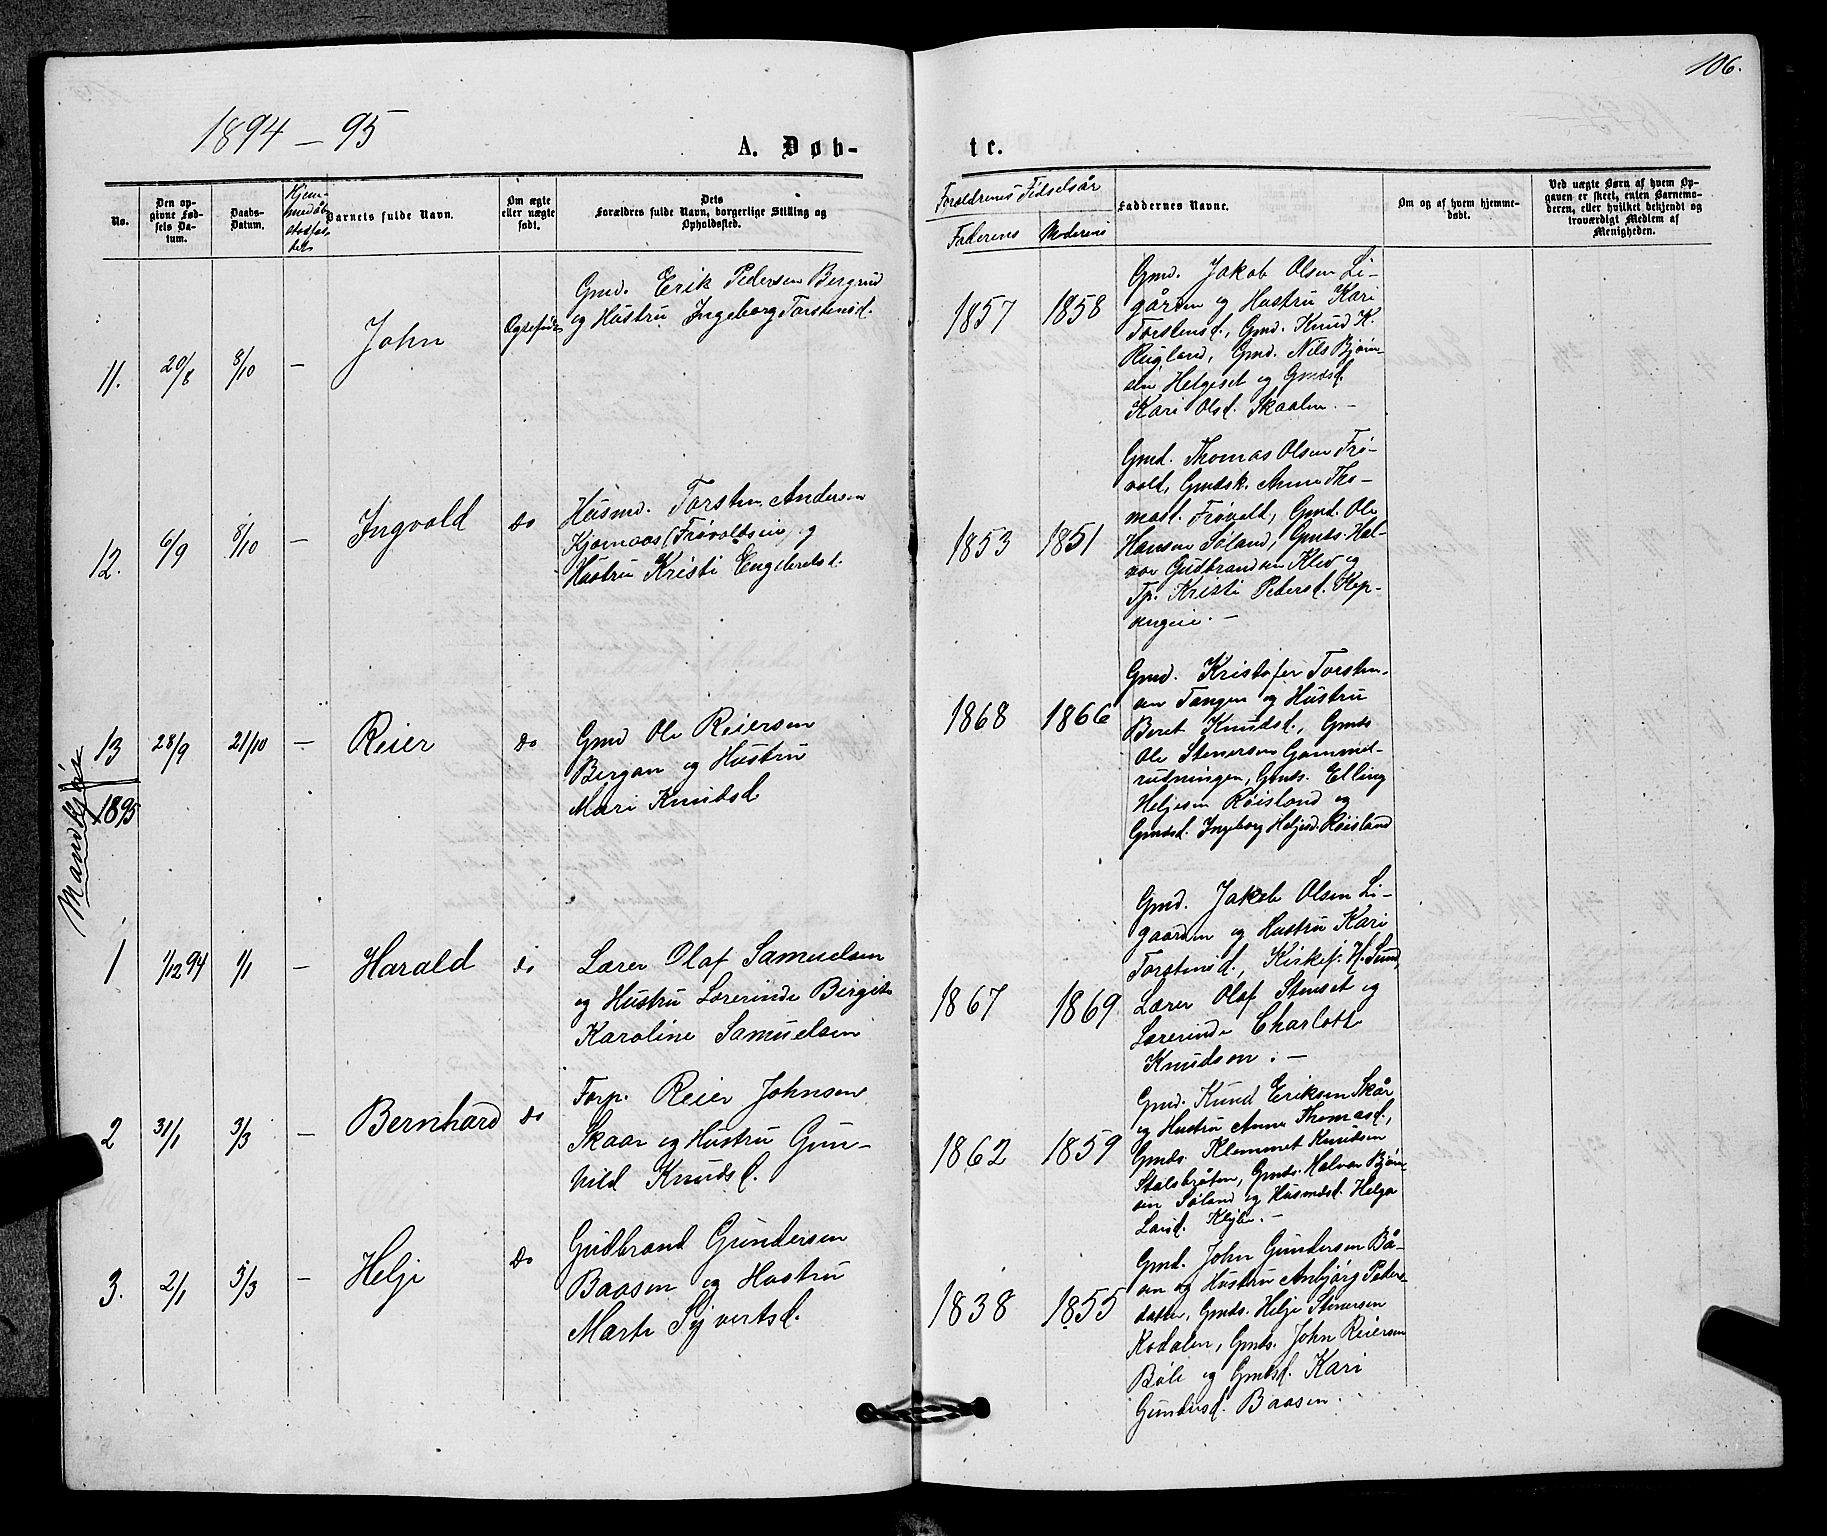 106.
1894 – 95
A. Døb-
te.
No.
Den op-
givne Fød-
sels Da-
tum.
Daabs-
Datum.
Hjem-
medåb
Barnets fulde Navn.
Om ægte
eller uægte
født.
Dets
Forældres fulde Navn, borgerlige Stilling og
Opholdssted.
Forældrenes Fødselsår
Faderens
Moderens
Faddernes Navne.
Om og af hvem hjemme-
døbt.
Ved uægte Børn af hvem Op-
gaven er skeet, enten Barnemo-
deren, eller hvilket bekjendt og
troværdigt Medlem af
Menigheden.
11.
20/8
8/10
–
John
Ægtefødt
Gmd. Erik Pedersen Bergrud
og Hustru Ingeborg Torstensd.
1857
1858
Gmd. Jakob Olsen Li-
gården og Hustru Kari
Torstensd., Gmd. Knud K.
Rugland, Gmd. Nils Bjørn-
sen Helgeset og Gmdsd.
Kari Olsd. Skaalen. –
12.
6/9
8/10
–
Ingvald
do
Husmd. Torsten Andersen
Kjømaas (Frøvoldseie) og
Hustru Kristi Engebretsd.
1853
1851
Gmd. Thomas Olsen Frø-
vold, Gmdsk. Anne Tho-
masd. Frøvold, Gmd. Ole
Hansen Søland, Gmds. Hal-
vor Gudbrandsen Klev og
Tp. Kristi Pedersd.
–
13
28/9
21/10
–
Reier
do
Gmd Ole Reiersen
Bergan og Hustru
Mari Knudsd
1868
1866
Gmd. Kristofer Torsten-
sen Tangen og Hustru
Beret Knudsd., Gmds
Ole Stenersen Gammel-
rudningen, Gmds. Elling
Heljesen Røisland og
Gmdsd. Ingeborg Heljesd. Røisland
Mandkjøn
1895
1
1/12 94
1/1
–
Harald
do
Lærer Olaf Samuelsen
og Hustru Lærerinde Birgit
Karoline Samuelsen
1867
1869
Gmd. Jakob Olsen Li-
gaarden og Hustru Kari
Torstensd., Kirkes. H. Sund,
Lærer Olaf Stenset og
Lærerinde Charlotte
Knudson. –
2
31/1
3/3
–
Bernhard
do
Forp. Reier Johnsen
Skaar og Hustru Gun-
hild Knudsd.
1862
1859
Gmd. Knud Eriksen Skår
og Hustru Anne Thomasd.,
Gmds. Klemmet Knudsen
Stalsbråten, Gmds. Halvor Bjørn-
sen Søland og Husmdsd. Helga
Larsd. –
3.
2/1
5/3
–
Helje
do
Gudbrand Gundersen
Baasen og Hustru
Marte Syvertsd.
1838
1855
Gmd. John Gundersen Bå-
sen og Hustru Anbjørg Peders-
datter, Gmds. Helje Stenersen
Rodalen, Gmds. John Reiersen
Bøle og Gmdsd. Kari
Gundersd. Baasen.